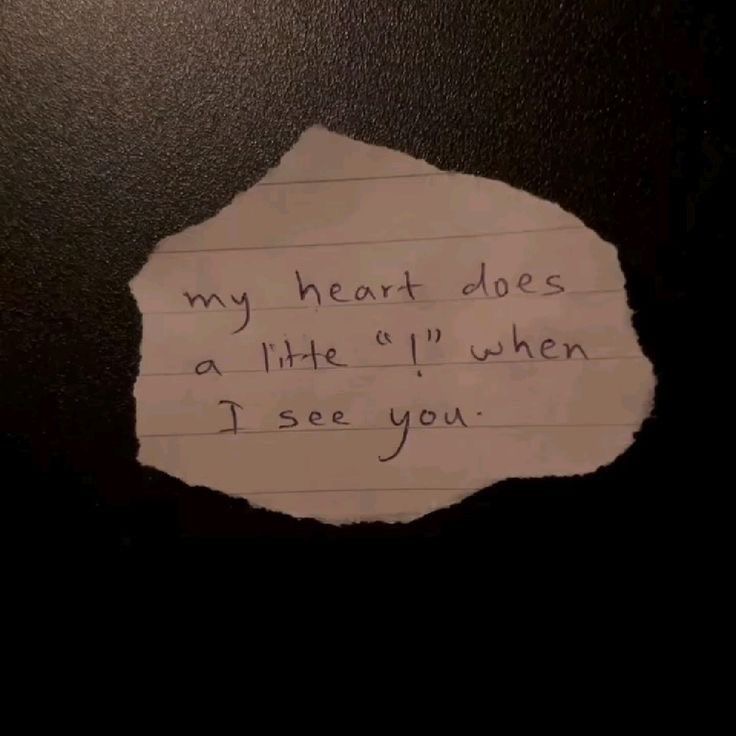 my heart does
a litte "!" when
I see you.